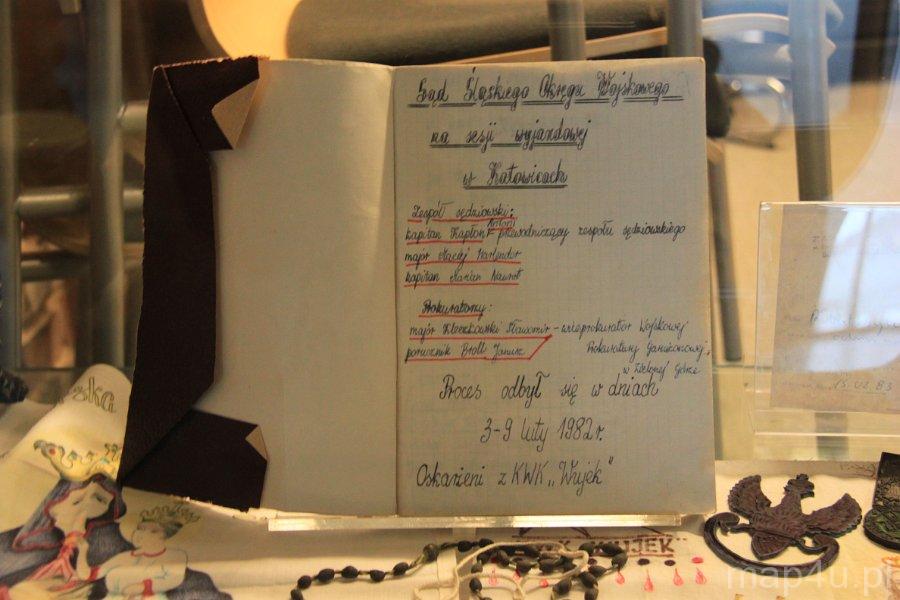 Sąd Śląskiego Okręgu Wojskowego
na sesji wyjazdowej
w Katowicach
Zespół sędziowski:
Antoni
kapitan Kapłon - przewodniczący zespołu sędziowskiego
major Maciej
kapitan Marian Nawrot
Prokuratorzy:
major Kleczkowski Sławomir - wiceprokurator Wojskowej
porucznik Broll Janusz Prokuratury Garnizonowej
w Zielonej Górze
Proces odbył się w dniach
3-9 luty 1982 r.
Oskarżeni z KWK „Wujek"
ska
WUJEK
map4u.pl